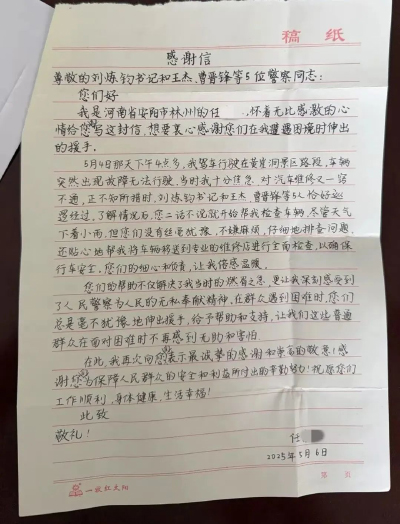 稿 纸
感谢信
尊敬的刘炼钧书记和王杰,曹晋锋等5位警察同志:
您们好
我是河南省安阳市林州的任 ,怀着无比感激的心
情给您写这封信,想要衷心感谢您们在我遭遇困境时伸出
的援手。
5月4日那天下午4点多,我驾车行驶在黄崖洞景区路段,车辆
突然出现故障无法行驶,当时我十分焦急,对汽车维修又一窍
不通,正不知所措时,刘炼钧书记和王杰,曹晋锋等5人恰好巡
逻经过,了解情况后,您二话不说就开始帮我检查车辆,尽管天气
下着小雨,但您们没有丝毫犹豫,不嫌麻烦,仔细地排查问题,
还贴心地帮我将车辆移送到专业的维修店进行全面检查,以确保
行车安全。您们的细心和负责,让我倍感温暖。
您们的帮助不仅解决了我当时的燃眉之急,更让我深刻感受到
了人民警察为人民的无私奉献精神,在群众遇到困难时,您们
总是毫不犹豫地伸出援手,给予帮助和支持,让我们这些普通
群众在面对困难时不再感到无助和害怕
在此,我再次向您表示最诚挚的感谢和崇高的敬意!感
谢您为保障人民群众的安全和利益所付出的辛勤努力!祝愿您们
工作顺利,身体健康,生活幸福!
此致
敬礼!
任
2025年5月6日
一放红太阳
第 页